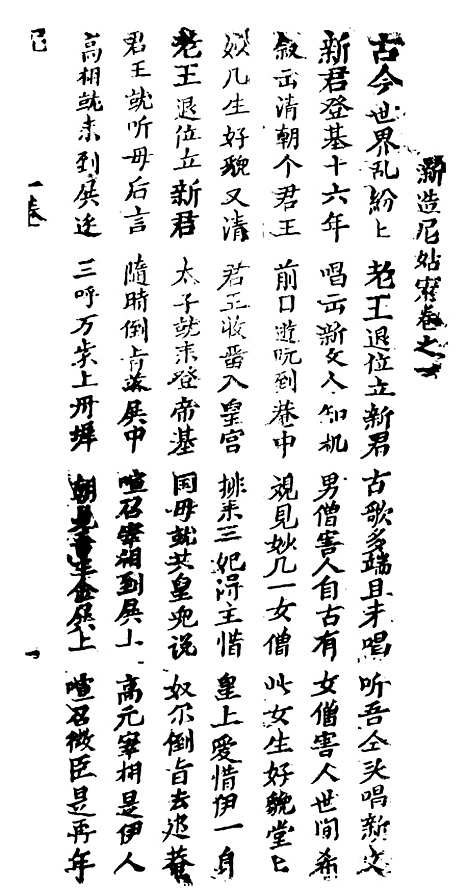 新造尼姑案卷之一
古今世界乱紛々 老王退位立新君 古歌多端且未唱 听吾仝头唱新文
新君登基十六年 唱出新文人知机 男僧害人自古有 女僧害人世间希
叙出清朝个君王 前日遊玩到巷中 視見妙几一女僧 此女生好貌堂々
妙几生好貌又清 君王收番入皇宫 排来三妃得主惜 皇上愛惜伊一身
老王退位立新君 太子就来登帝基 国母就共皇兒说 奴尔倒旨去 菴
君王就听母后言 隨時倒 落展中 喧召宰相到展上 高元宰相是伊人
高相就来到展廷 三呼万岁上丹墀 朝見 展上 喧召微臣是再年
尼 一卷 一